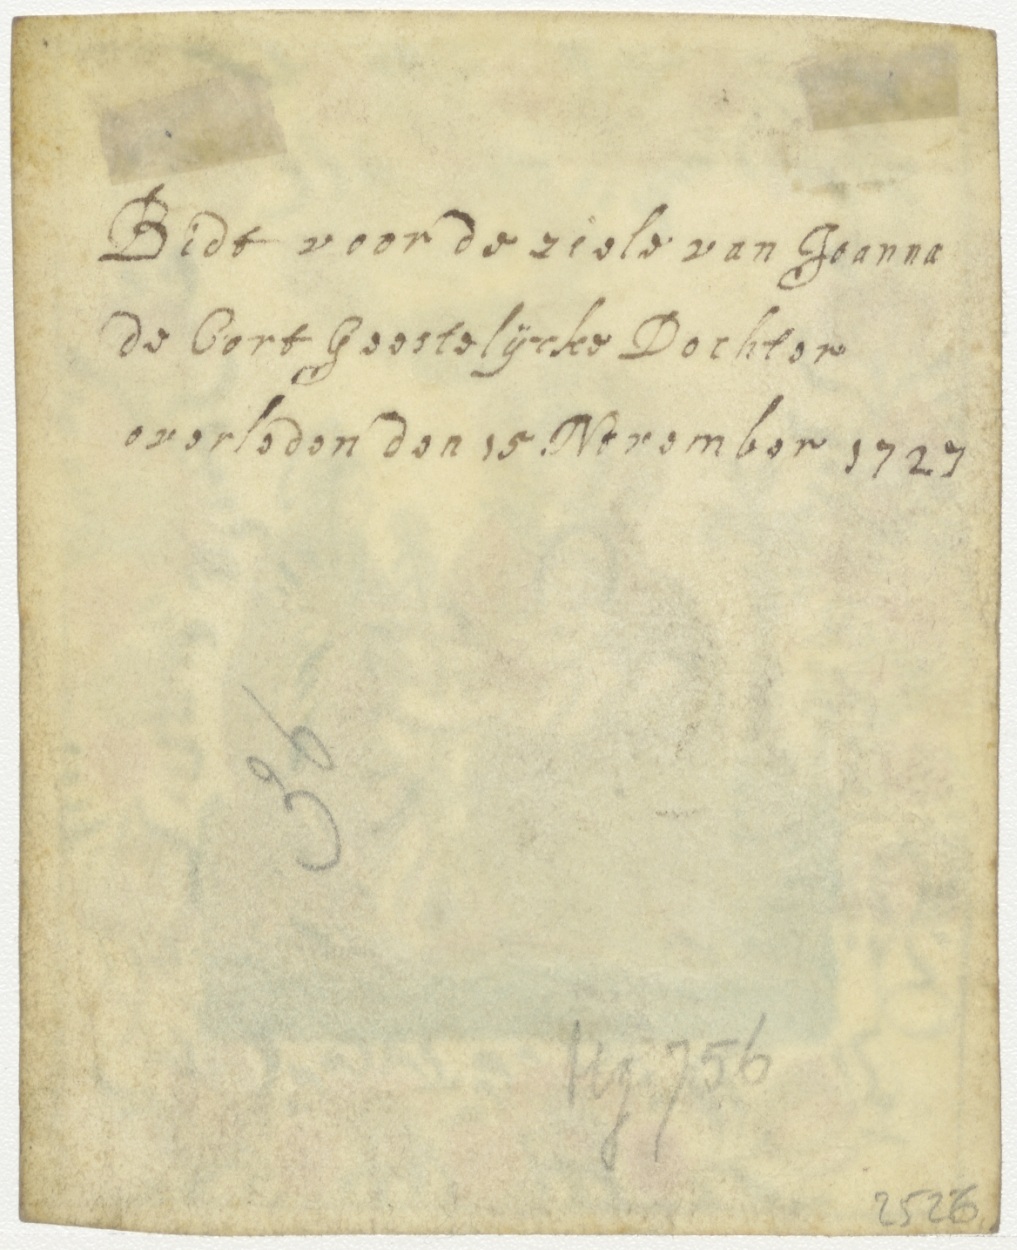 Bidt voor de ziele van Joanna
de Cort Geestelÿcke Dochter
overleden den 15 November 1727
36
Hg 756
2526